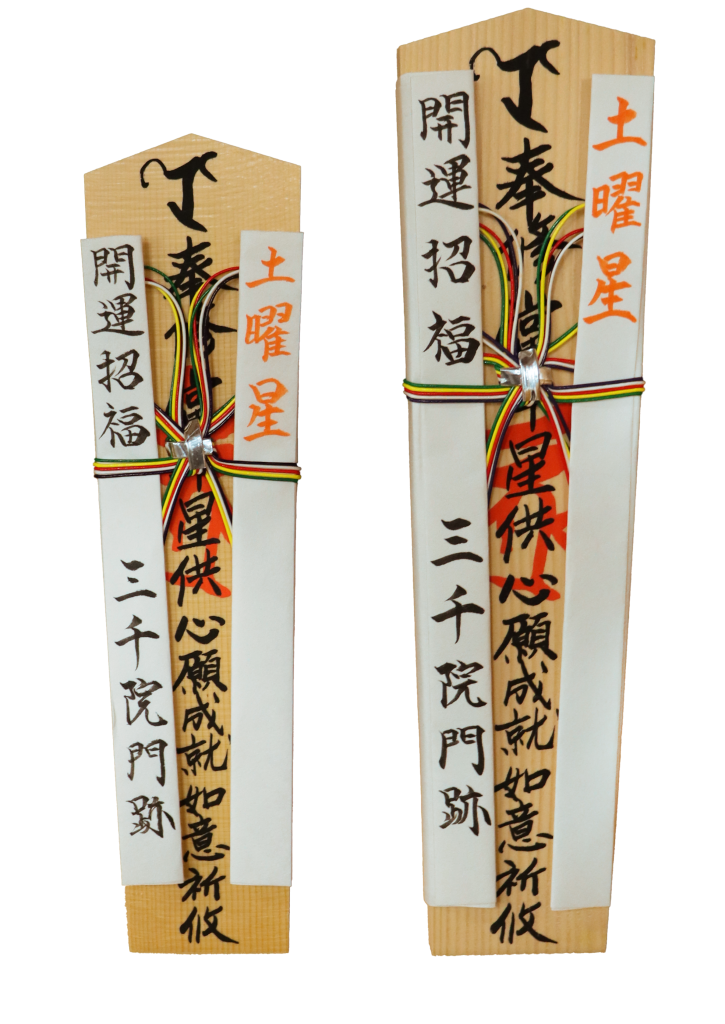 土曜星
奉修當星供心願成就如意祈攸
開運招福 三千院門跡
土曜星
奉修當星供心願成就如意祈攸
開運招福 三千院門跡